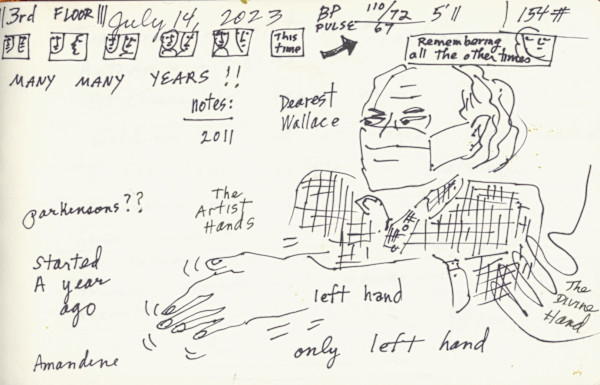 3rd FLOOR July 14, 2023 BP 110/72 5'11 154#
PULSE 67
This time
Remembering
all The other times
MANY MANY YEARS !!
notes:
2011
Dearest
Wallace
parkinsons??
The
Artist
Hands
started
A year
ago
left hand
The
Divine
Hand
only left hand
Amandine